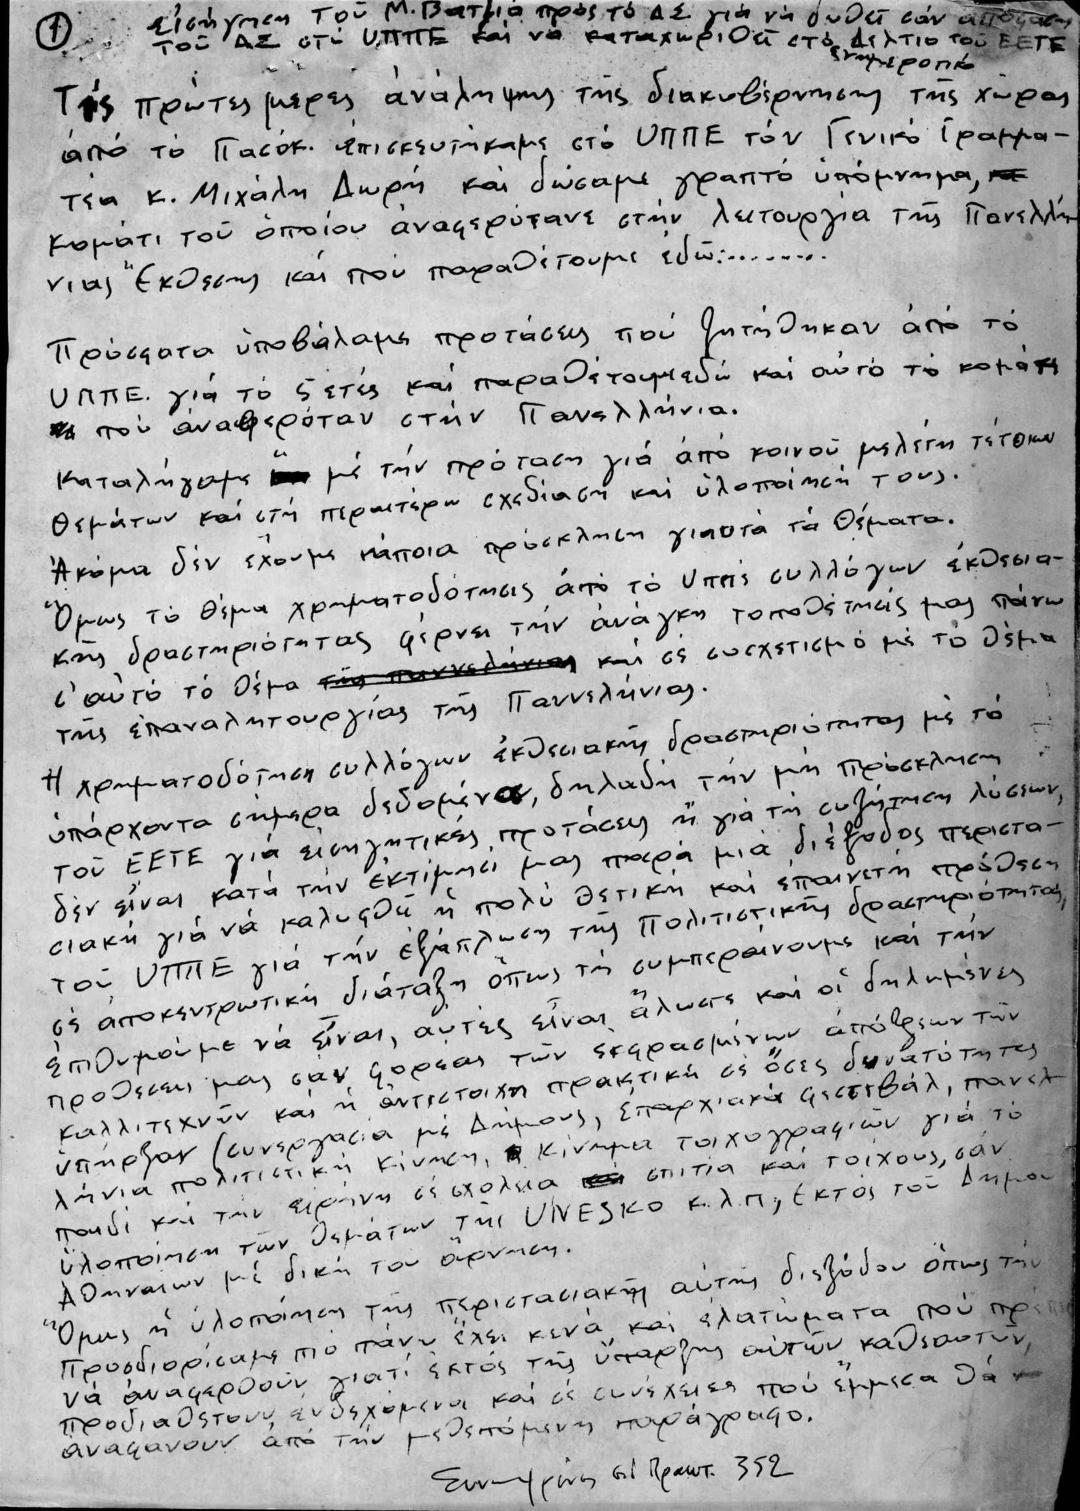 1
εἰσήγηση τοῦ Μ. Βατζιᾶ πρός τό ΔΣ γιά νά δοθεῖ σάν ἀπόφαση
τοῦ ΔΣ στό ΥΠΠΕ καί νά καταχωρηθεῖ στό Δελτίο τοῦ ΕΕΤΕ
ἐνημεροτικό
Τίς πρῶτες μέρες ἀνάληψης τῆς διακυβέρνησης τῆς χώρας
ἀπό τό Πασόκ. ἐπισκευτήκαμε στό ΥΠΠΕ τόν Γενικό Γραμμα-
τέα κ. Μιχάλη Δωρή καί δώσαμε γραπτό ὑπόμνημα,
κομάτι τοῦ ὁποίου ἀναφερότανε στήν λειτουργία τῆς Πανελλή-
νιας Ἔκθεσης καί πού παραθέτουμε ἐδῶ:........
Πρόσφατα ὑποβάλαμε προτάσεις πού ζητήθηκαν ἀπό τό
ΥΠΠΕ. γιά τό 5ετές καί παραθέτουμε ἐδῶ καί αὐτό τό κομάτι
πού ἀναφερόταν στήν Πανελλήνια.
Καταλήγαμε μέ τήν πρόταση γιά ἀπό κοινοῦ μελέτη τέτοιων
θεμάτων καί στή περαιτέρω σχεδίαση καί ὑλοποίησή τους.
Ἀκόμα δέν ἔχουμε κάποια πρόσκληση γιαυτά τά θέματα.
Ὅμως τό θέμα χρηματοδότησις ἀπό τό Υππέ συλλόγων ἐκθεσια-
κῆς δραστηριότητας φέρνει τήν ἀνάγκη τοποθέτησίς μας πάνω
σ' αὐτό τό θέμα τῆς πανελλήνιας καί σέ συσχετισμό μέ τό θέμα
τῆς ἐπαναλητουργίας τῆς Παννελήνιας.
Ἡ χρηματοδότηση συλλόγων ἐκθεσιακῆς δραστηριότητας μέ τά
ὑπάρχοντα σήμερα δεδομένα, δηλαδή τήν μή πρόσκληση
τοῦ ΕΕΤΕ γιά εἰσηγητικές προτάσεις ἤ γιά τή συζήτηση λύσεων,
δέν εἶναι κατά τήν ἐκτίμησή μας παρά μιά διέξοδος περιστα-
σιακή γιά νά καλυφθεῖ ἡ πολύ θετική καί ἐπαινετή πρόθεση
τοῦ ΥΠΠΕ γιά τήν ἐξάπλωση τῆς Πολιτιστικῆς δραστηριότητας,
σέ ἀποκεντρωτική διάταξη ὅπως τή συμπεραίνουμε καί τήν
ἐπιθυμοῦμε νά εἶναι, αὐτές εἶναι ἄλωστε καί οἱ δηλημένες
προθέσεις μας σάν φορέας τῶν ἐκφρασμένων ἀπόψεων τῶν
καλλιτεχνῶν καί ἡ ἀντίστοιχη πρακτική σέ ὅσες δυνατότητες
ὑπῆρξαν (συνεργασία μέ Δήμους, ἐπαρχιακά φεστιβάλ, πανελ-
λήνια πολιτιστική κίνηση, κίνημα τοιχογραφιῶν γιά τό
παιδί καί τήν εἰρήνη σέ σχολεία σπίτια καί τοίχους, σάν
ὑλοποίηση τῶν θεμάτων τῆς UNESKO κ.λ.π, ἐκτός τοῦ Δήμου
Ἀθηναίων μέ δική του ἄρνηση.
Ὅμως ἡ ὑλοποίηση τῆς περιστασιακῆς αὐτῆς διεξόδου ὅπως τήν
προσδιορίσαμε πιό πάνω ἔχει κενά καί ἐλατώματα πού πρέπει
νά ἀναφερθοῦν γιατί ἐκτός τῆς ὕπαρξης αὐτῶν καθεαυτῶν,
προδιαθέτουν ἐνδεχόμενα καί σέ συνέχειες πού ἔμμεσα θά
ἀναφανοῦν ἀπό τήν μεθεπόμενη παράγραφο.
Πρακτ. 352